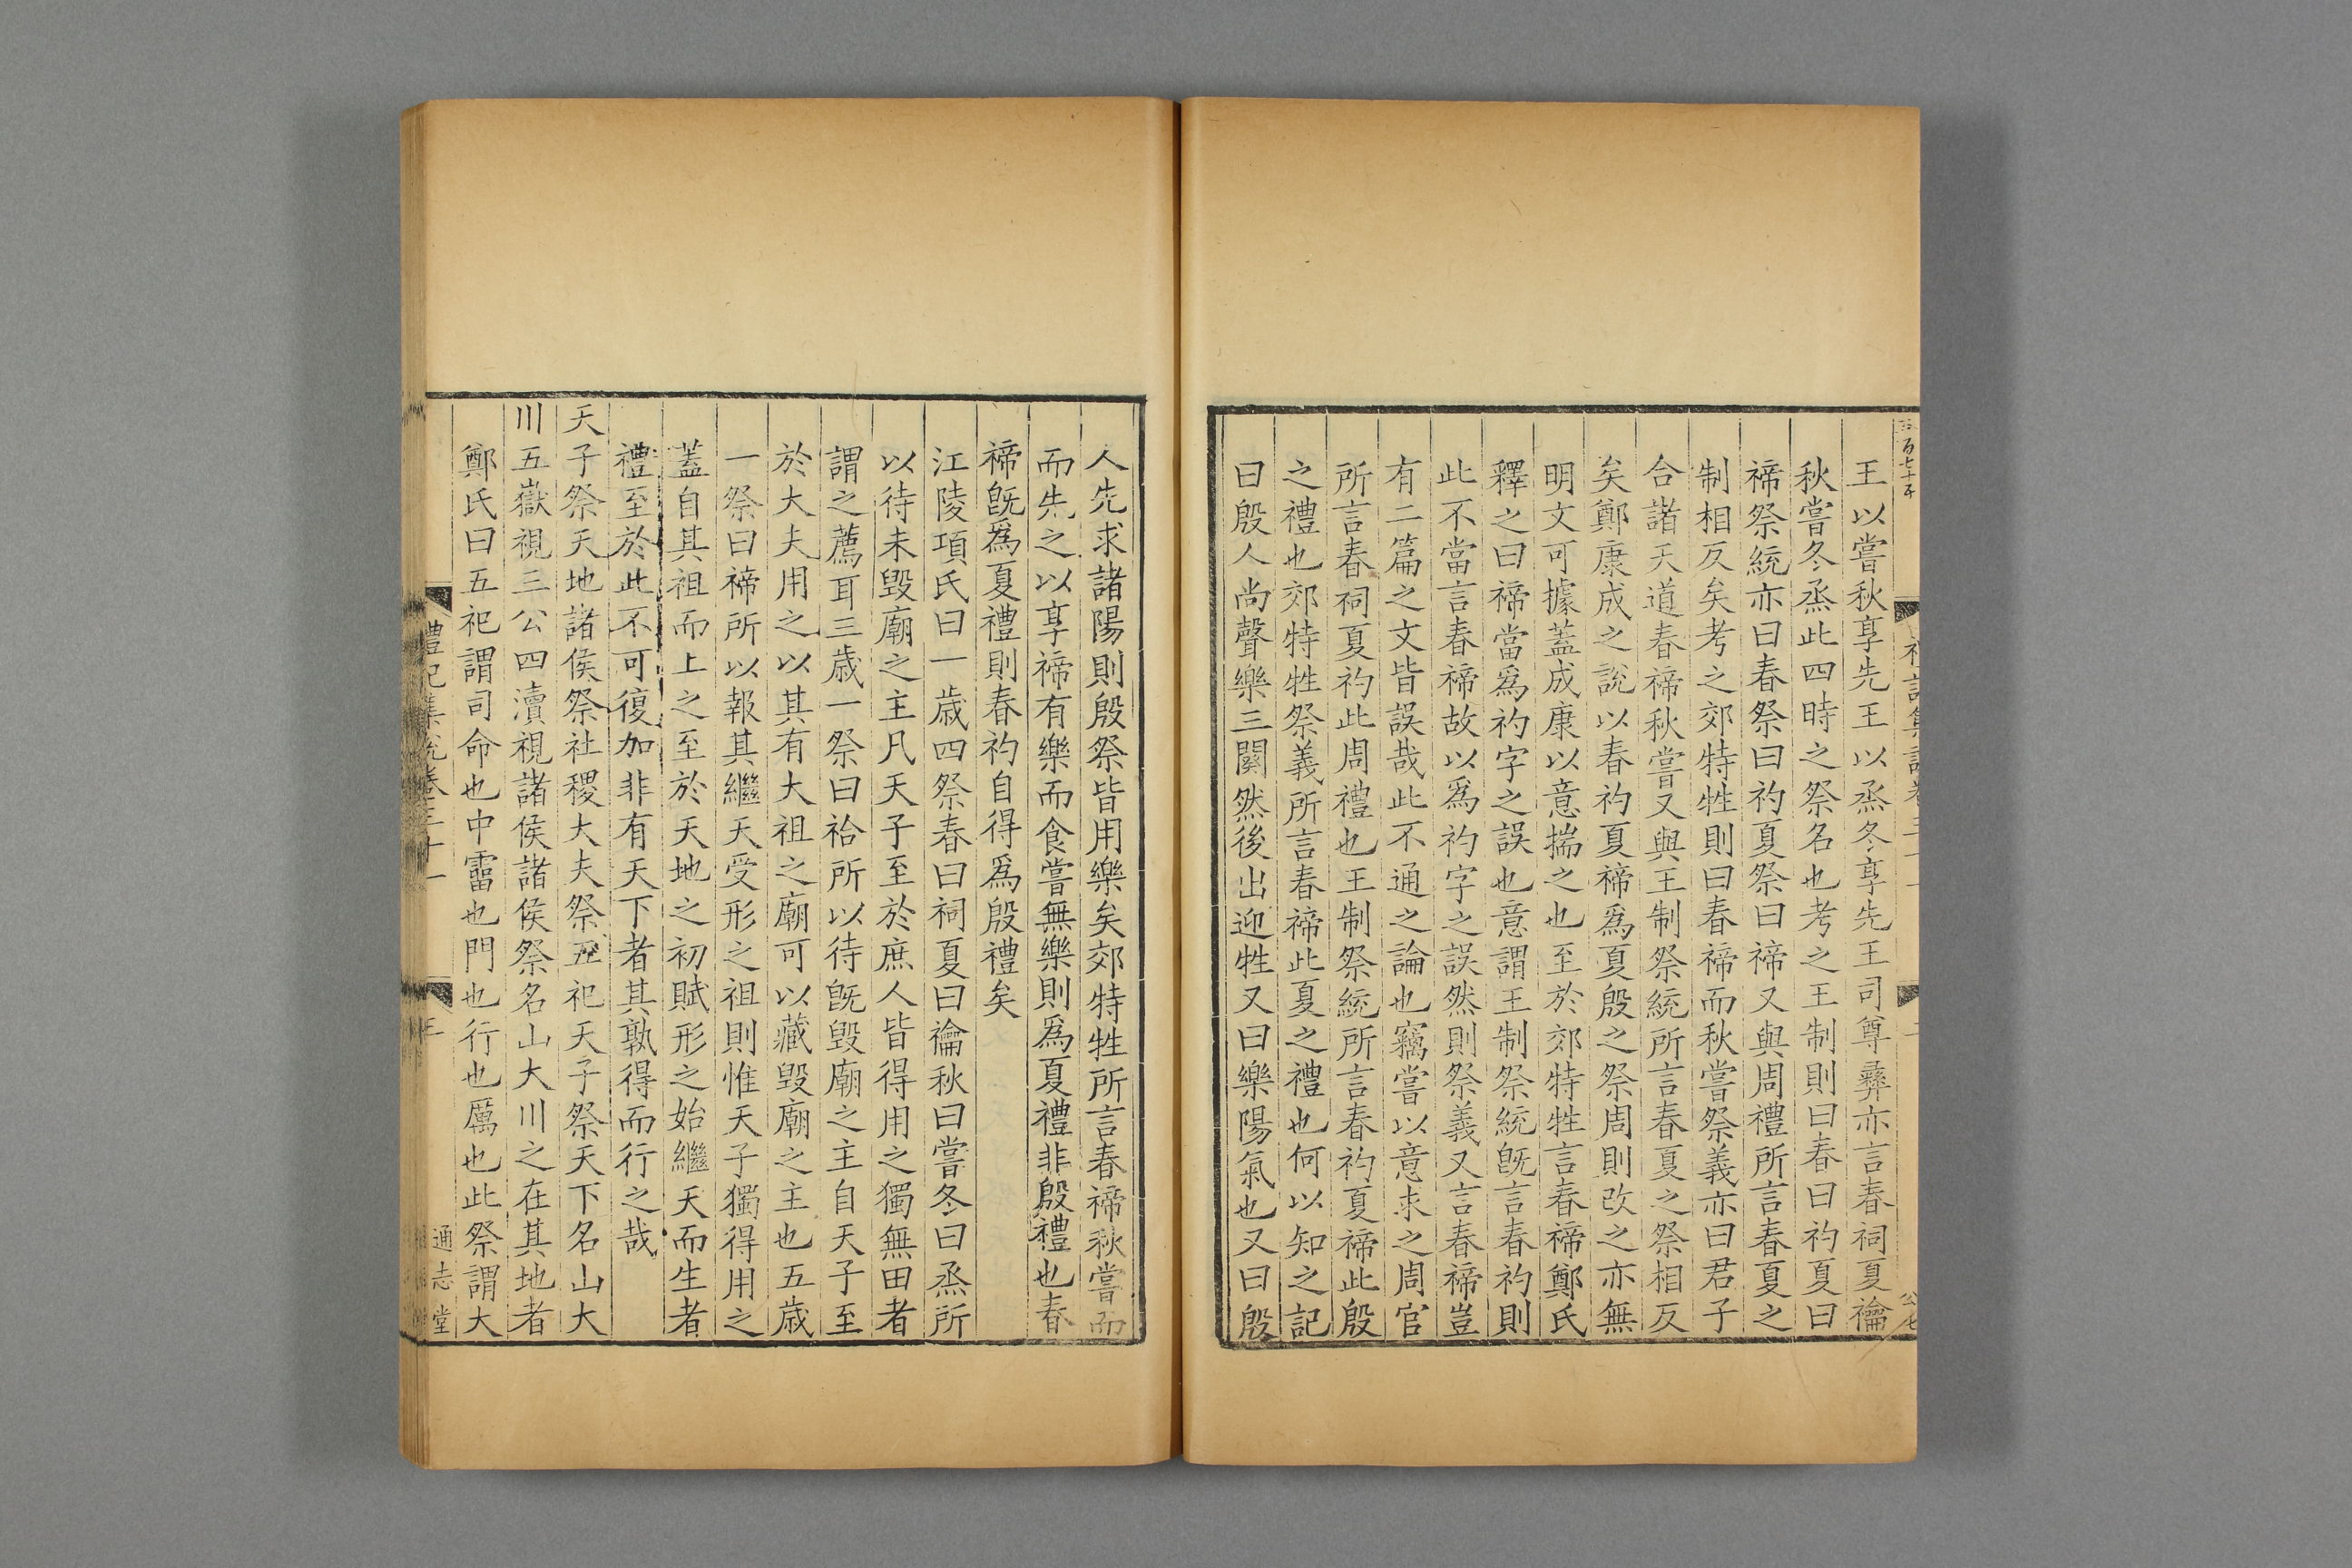 王以嘗秋享先王以烝冬享先王司尊彝亦言春祠夏禴
秋嘗冬烝此四時之祭名也考之王制則曰春曰礿夏曰
禘祭統亦曰春祭曰礿夏祭曰禘又與周禮所言春夏之
制相反矣考之郊特牲則曰春禘而秋嘗祭義亦曰君子
合諸天道春禘秋嘗又與王制祭統所言春夏之祭相反
矣鄭康成之說以春礿夏禘為夏殷之祭周則改之亦無
明文可據蓋成康以意揣之也至於郊特牲言春禘鄭氏
釋之曰禘當為礿字之誤也意謂王制祭統既言春礿則
此不當言春禘故以為礿字之誤然則祭義又言春禘豈
有二篇之文皆誤哉此不通之論也竊嘗以意求之周官
所言春祠夏礿此周禮也王制祭統所言春礿夏禘此殷
之禮也郊特牲祭義所言春禘此夏之禮也何以知之記
曰殷人尚聲樂三闋然後出迎牲又曰樂陽氣也又曰殷
人先求諸陽則殷祭皆用樂矣郊特牲所言春禘秋嘗而
而先之以享禘有樂而食嘗無樂則為夏禮非殷禮也春
禘既為夏禮則春礿自得為殷禮矣
江陵項氏曰一歲四祭春曰祠夏曰禴秋曰嘗冬曰烝所
以待未毀廟之主凡天子至於庶人皆得用之獨無田者
謂之薦耳三歲一祭曰祫所以待既毀廟之主自天子至
於大夫用之以其有大祖之廟可以藏毀廟之主也五歲
一祭曰禘所以報其繼天受形之祖則惟天子獨得用之
蓋自其祖而上之至於天地之初賦形之始繼天而生者
禮至於此不可復加非有天下者其孰得而行之哉
天子祭天地諸侯祭社稷大夫祭五祀天子祭天下名山大
川五嶽視三公四瀆視諸侯諸侯祭名山大川之在其地者
鄭氏曰五祀謂司命也中霤也門也行也厲也此祭謂大
禮記集說卷三十一
三
通志堂